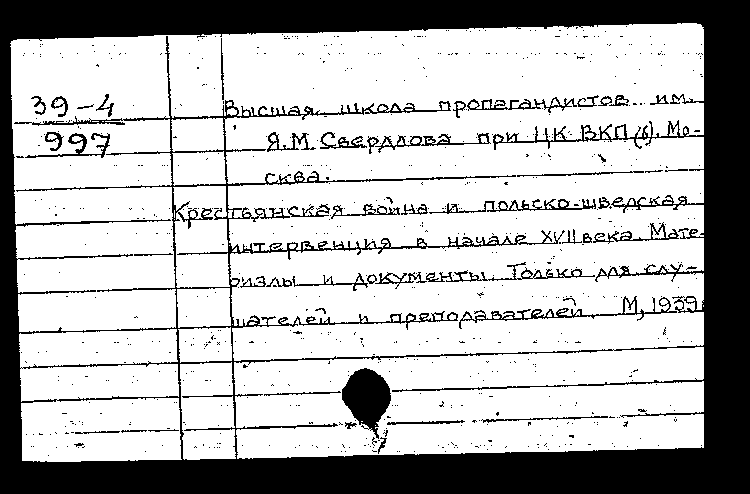 39-4
997
Высшая школа пропагандистов им.
Я.М. Свердлова при ЦК ВКП(б). Мо-
сква.
Крестьянская война и польско-шведская
интервенция в начале XVII века. Мате-
риалы и документы. Только для слу-
шателей и преподавателей. М, 1939